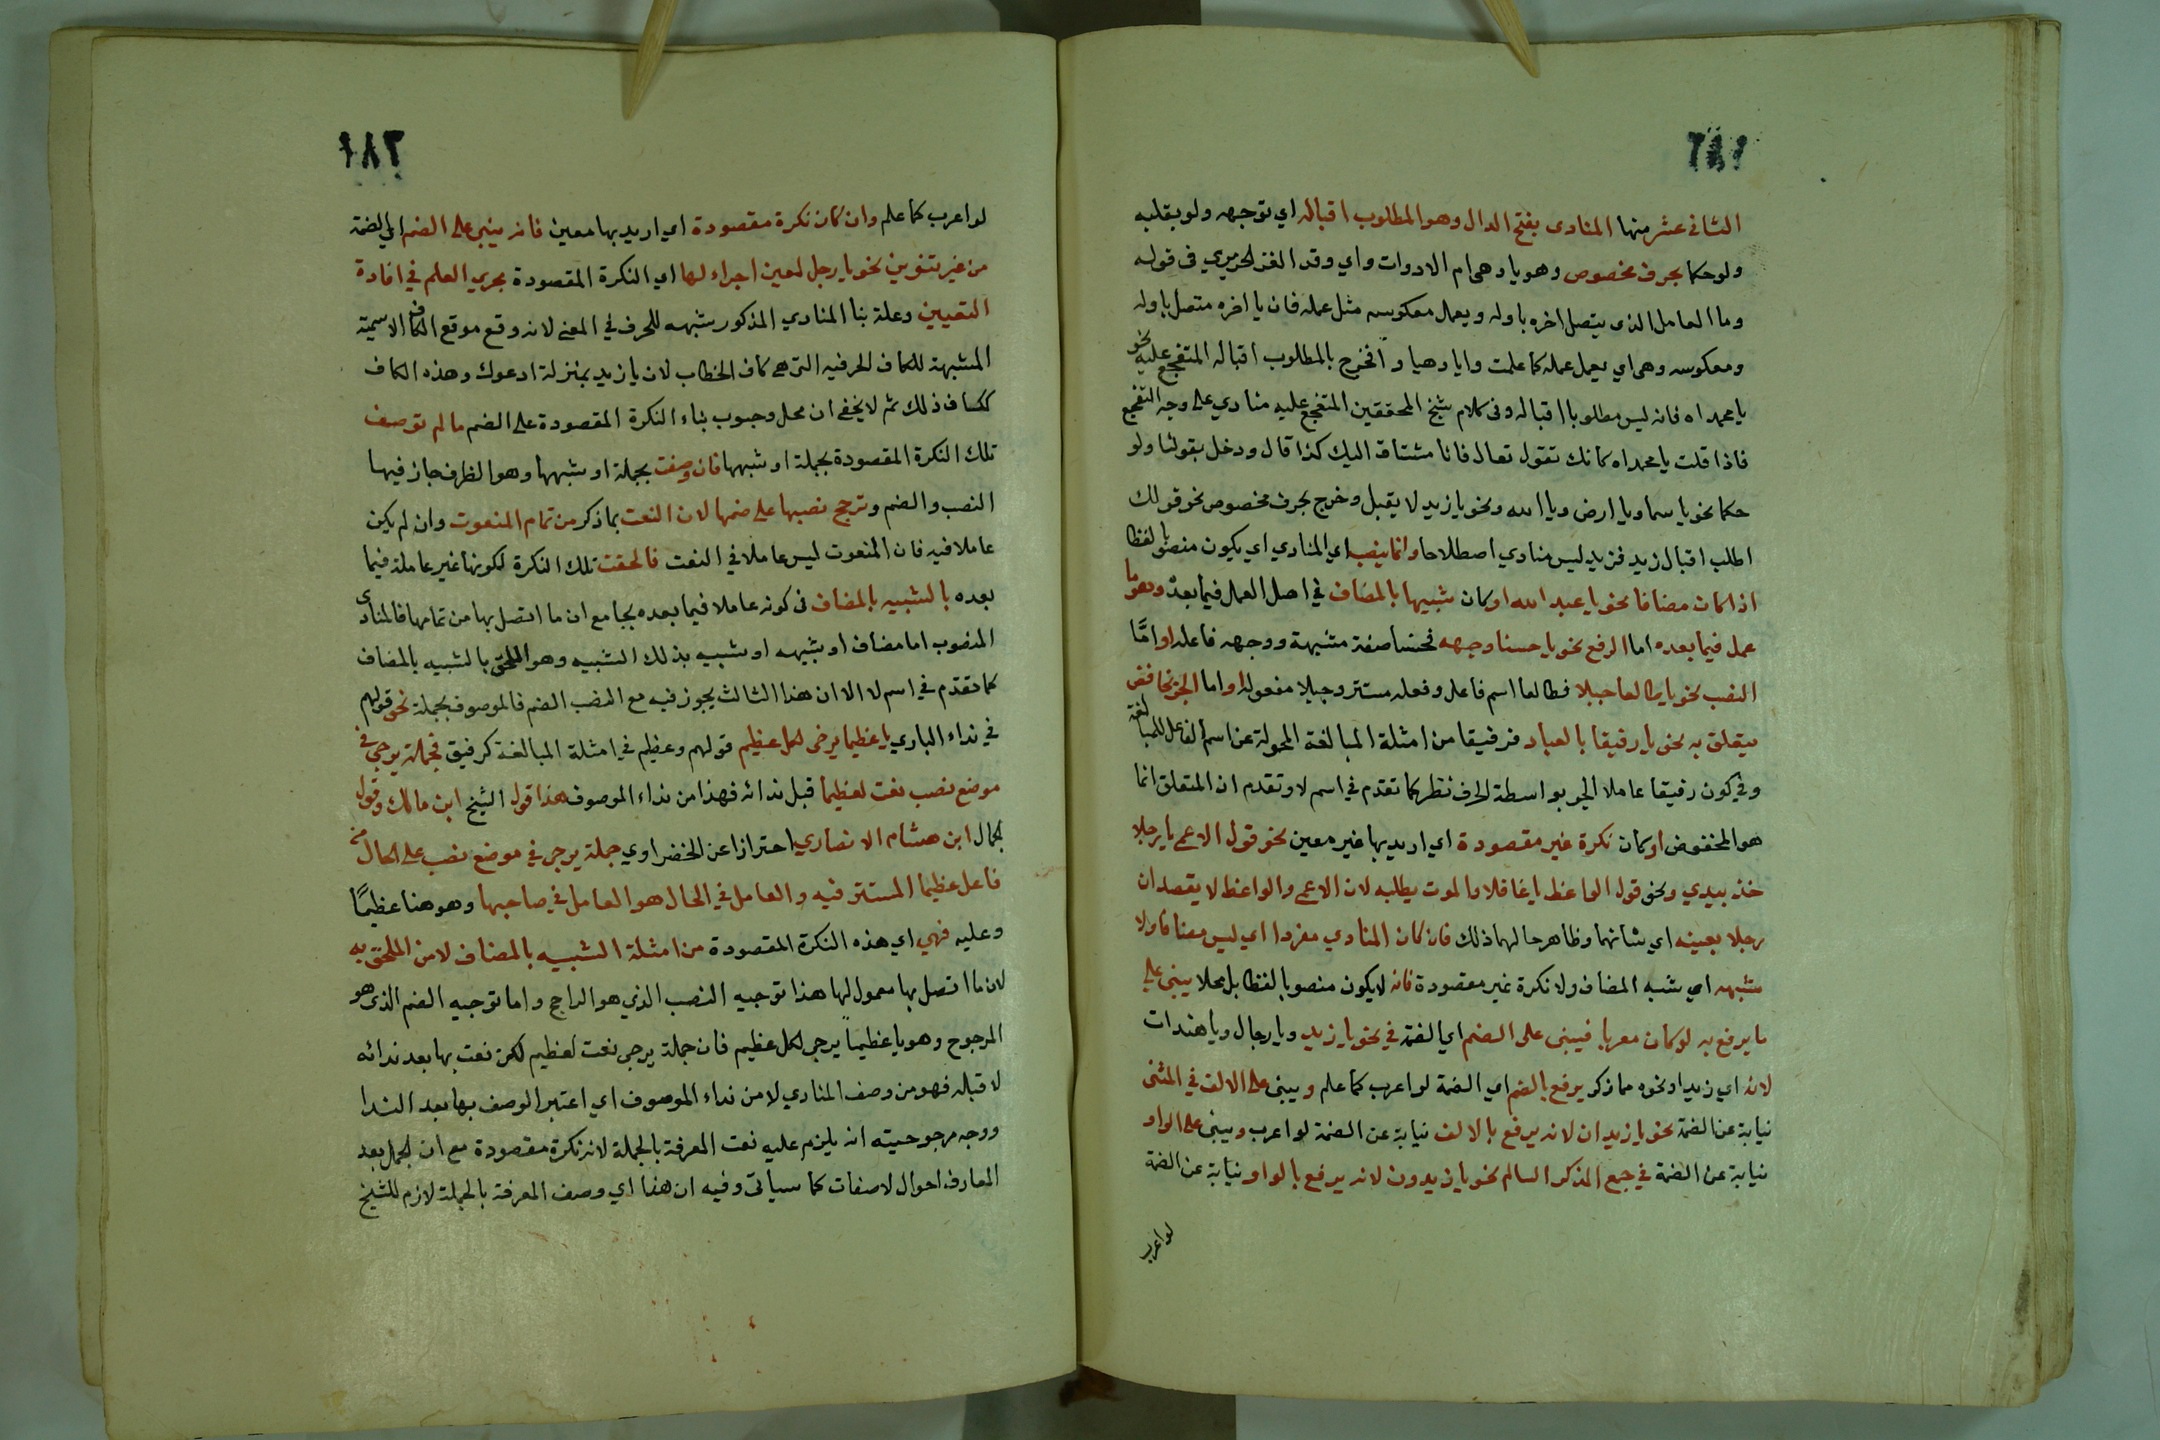 الثانى عشر منها المنادى بفتح الدال وهو المطلوب اقباله اي توجهه ولو بقلبه
ولو حكما بحرف مخصوص وهو يا وهى ام الادوات واي وقد الغز الحريري فى قوله
وما العامل الذى يتصل اخره باوله ويعمل معكوسه مثل عمله فان يا اخره متصل باوله
ومعكوسه وهى اي يعمل عمله كما علمت وايا وهيا وأ فخرج بالمطلوب اقباله المتفجع عليه نحو
يا محمداه فانه ليس مطلوبا اقباله وفى كلام شيخ المحققين المتفجع عليه منادي على وجه التفجع
فاذا قلت يا محمداه كانك تقول تعال فانا مشتاق اليك كذا قال ودخل بقولنا ولو
حكما نحو يا سما ويا ارض ويا الله ونحو يا زيد لا يقبل وخرج بحرف مخصوص نحو قولك
اطلب اقبال زيد فزيد ليس منادي اصطلاحا وانما ينصب اي المنادي اي يكون منصوبا لفظا
اذا كان مضافا نحو يا عبد الله او كان شبيها بالمضاف في اصل العمل فيما بعده وهو ما
عمل فيما بعده اما الرفع نحو يا حسنا وجهه فحسنا صفة مشبهة ووجهه فاعله او امَّا
النصب نحو يا طالعا جبلا فطالعا اسم فاعل وفعله مستتر وجبلا مفعوله او اما الجر بخافض
يتعلق به نحو يا رفيقا بالعباد فرفيقا من امثلة المبالغة المحولة عن اسم الفاعل للمبالغة
وفي كون رفيقا عاملا الجر بواسطة الحرف نظر كما تقدم في اسم لا وتقدم ان المتعلق انما
هو المخفوض او كان نكرة غير مقصودة اي اريد بها غير معين نحو قول الاعمى يا رجلا
خذ بيدي ونحو قول الواعظ يا غافلا والموت يطلبه لان الاعمى والواعظ لا يقصدان
رجلا بعينه اي شانهما وظاهر حالهما ذلك فان كان المنادي مفردا اي ليس مضافا ولا
شبهه اي شبه المضاف ولا نكرة غير مقصودة فانه لا يكون منصوبا لفظا بل محلا يبنى على
ما يرفع به لو كان معربا فيبنى على الضم اي الضمة في نحو يا زيد ويا رجال ويا هندات
لانه اي زيد او نحوه مما ذكر يرفع بالضم اي الضمة لو اعرب كما علم ويبنى على الالف في المثنى
نيابة عن الضمة نحو يا زيدان لانه يرفع بالالف نيابة عن الضمة لو اعرب ويبنى على الواو
نيابة عن الضمة في جمع المذكر السالم نحو يا زيدون لانه يرفع بالواو نيابة عن الضمة
لو اعرب
١٨٣
لو اعرب كما علم وان كان نكرة مقصودة اي اريد بها معين فانه يبنى على الضم اي الضمة
من غير تنوين نحو يا رجل لمعين اجراء لها اي النكرة المقصودة مجري العلم في افادة
التعيين وعلة بنا المنادي المذكور شبهه للحرف في المعنى لانه وقع موقع الكاف الاسمية
المشبهة للكاف الحرفيه التى هى كاف الخطاب لان يا زيد بمنزلة ادعوك وهذه الكاف
ككاف ذلك ثم لا يخفى ان محل وجوب بناء النكرة المقصودة على الضم ما لم توصف
تلك النكرة المقصودة بجملة او شبهها فان وصفت بجملة او شبهها وهو الظرف جاز فيها
النصب والضم وترجح نصبها على ضمها لان النعت بما ذكر من تمام المنعوت وان لم يكن
عاملا فيه فان المنعوت ليس عاملا في النعت فالحقت تلك النكرة لكونها غير عاملة فيما
بعده بالشبيه بالمضاف فى كونه عاملا فيما بعده بجامع ان ما اتصل بها من تمامها فالمنادى
المنصوب اما مضاف او شبهه او شبيه بذلك الشبيه وهو الملحق بالشبيه بالمضاف
كما تقدم في اسم لا الا ان هذا الثالث يجوز فيه مع النصب الضم فالموصوف بجملة نحو قولهم
في نداء الباري يا عظيما يرجى لكل عظيم قولهم وعظيم في امثلة المبالغة كرفيق فجملة يرجى في
موضع نصب نعت لعظيما قبل ندائه فهذا من نداء الموصوف هذا قول الشيخ ابن مالك وقول
الجمال ابن هشام الانصاري احترازا عن الخضراوي جملة يرجى في موضع نصب على الحال من
فاعل عظيما المستتر فيه والعامل في الحال هو العامل في صاحبها وهو هنا عظيمًا
وعليه فهي اي هذه النكرة المقصودة من امثلة الشبيه بالمضاف لا من الملحق به
لان ما اتصل بها معمول لها هذا توجيه النصب الذي هو الراجح واما توجيه الضم الذى هو
المرجوح وهو يا عظيماً يرجى لكل عظيم فان جملة يرجى نعت لعظيم لكن نعت بها بعد ندائه
لا قبله فهو من وصف المنادي لا من نداء الموصوف اي اعتبر الوصف بها بعد الندا
ووجه مرجوحيته انه يلزم عليه نعت المعرفة بالجملة لانه نكرة مقصودة مع ان الجمل بعد
المعارف احوال لا صفات كما سيأتى وفيه ان هذا اي وصف المعرفة بالجملة لازم للشيخ